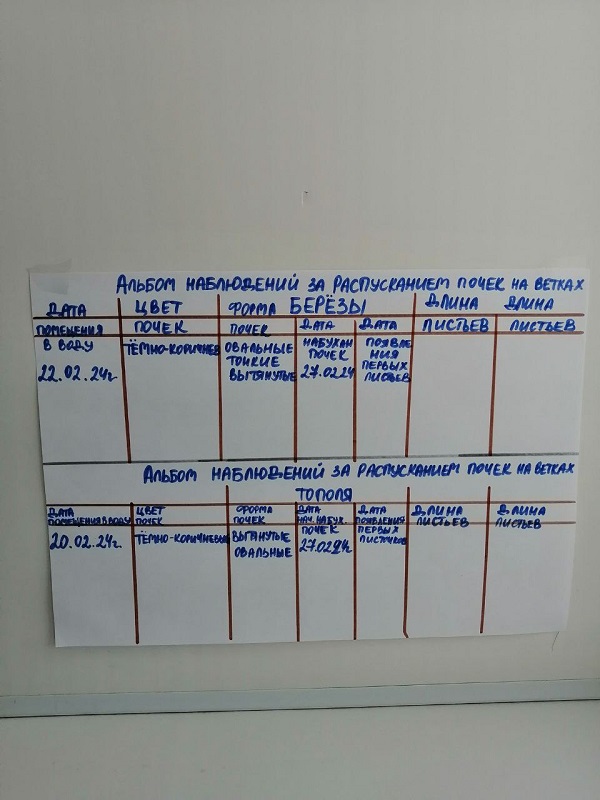 АЛЬБОМ НАБЛЮДЕНИЙ ЗА РАСПУСКАНИЕМ ПОЧЕК НА ВЕТКАХ
БЕРЁЗЫ
ДАТА ЦВЕТ ФОРМА ДЛИНА ДЛИНА
ПОМЕЩЕНИЯ ПОЧЕК ПОЧЕК ДАТА ДАТА ЛИСТЬЕВ ЛИСТЬЕВ
В ВОДУ ТЁМНО-КОРИЧНЕВ ОВАЛЬНЫЕ НАБУХАН ПОЯВЛЕ
ТОНКИЕ ПОЧЕК НИЯ
22.02.24г. ВЫТЯНУТЫЕ 27.0224 ПЕРВЫХ
ЛИСТЬЕВ
АЛЬБОМ НАБЛЮДЕНИЙ ЗА РАСПУСКАНИЕМ ПОЧЕК НА ВЕТКАХ
ТОПОЛЯ
ДАТА ЦВЕТ ФОРМА ДАТА ДАТА ДЛИНА ДЛИНА
ПОМЕЩЕНИЯ В ВОДУ ПОЧЕК ПОЧЕК НАЧ.НАБУХ. ПОЯВЛЕНИЯ ЛИСТЬЕВ ЛИСТЬЕВ
20.02.24г. ТЁМНО-КОРИЧНЕВЫЕ ВЫТЯНУТЫЕ ПОЧЕК ПЕРВЫХ
ОВАЛЬНЫЕ 27.0224г ЛИСТОЧКОВ